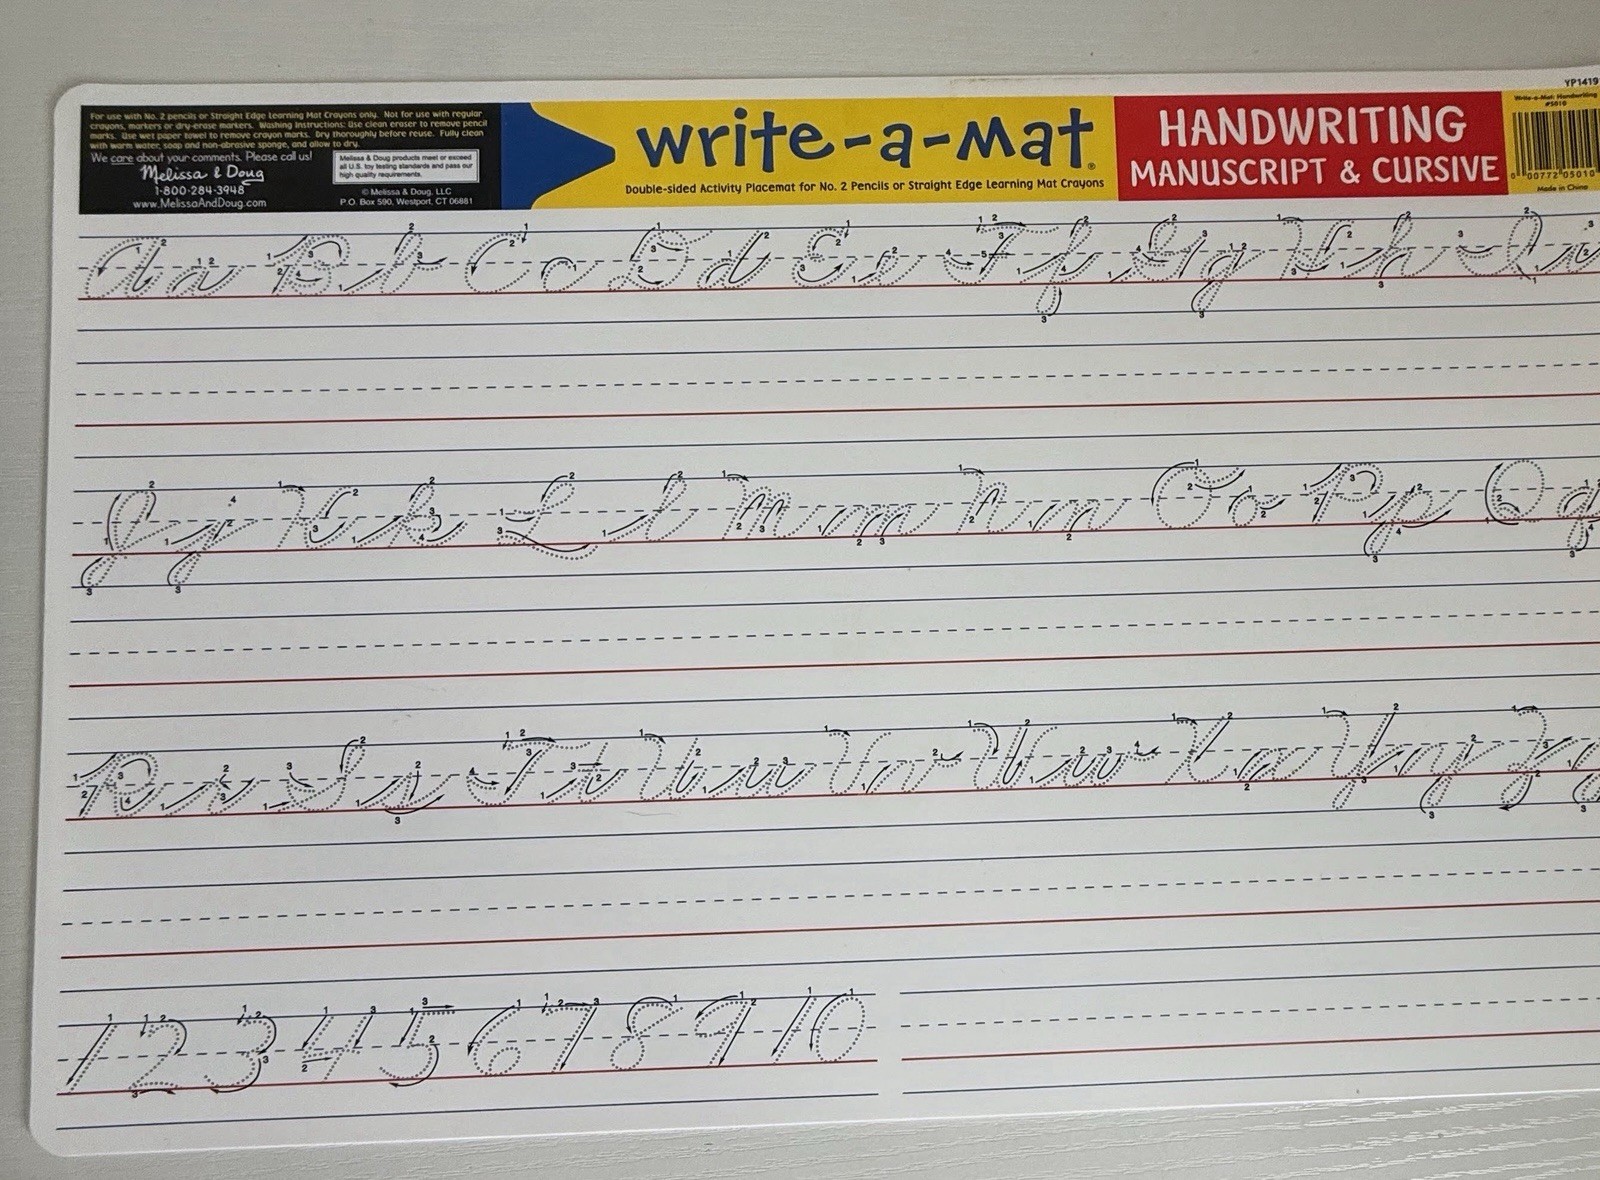 YP1419
For use with No. 2 pencils or Straight Edge Learning Mat Crayons only. Not for use with regular
crayons, markers or dry-erase markers. Washing Instructions: Use clean eraser to remove pencil
marks. Use wet paper towel to remove crayon marks. Dry thoroughly before reuse. Fully clean
with warm water, soap and non-abrasive sponge, and allow to dry.
We care about your comments. Please call us!
Melissa & Doug
1-800-284-3948
www.MelissaAndDoug.com
Melissa & Doug products meet or exceed
all U.S. toy testing standards and pass our
high quality requirements.
© Melissa & Doug, LLC
P.O. Box 590, Westport, CT 06881
write-a-mat®
Double-sided Activity Placemat for No. 2 Pencils or Straight Edge Learning Mat Crayons
HANDWRITING
MANUSCRIPT & CURSIVE
Write-a-Mat: Handwriting
#5010
0 00772 05010
Made in China
A a B b C c D d E e F f G g H h I i
J j K k L l M m N n O o P p Q q
R r S s T t U u V v W w X x Y y Z z
1 2 3 4 5 6 7 8 9 10